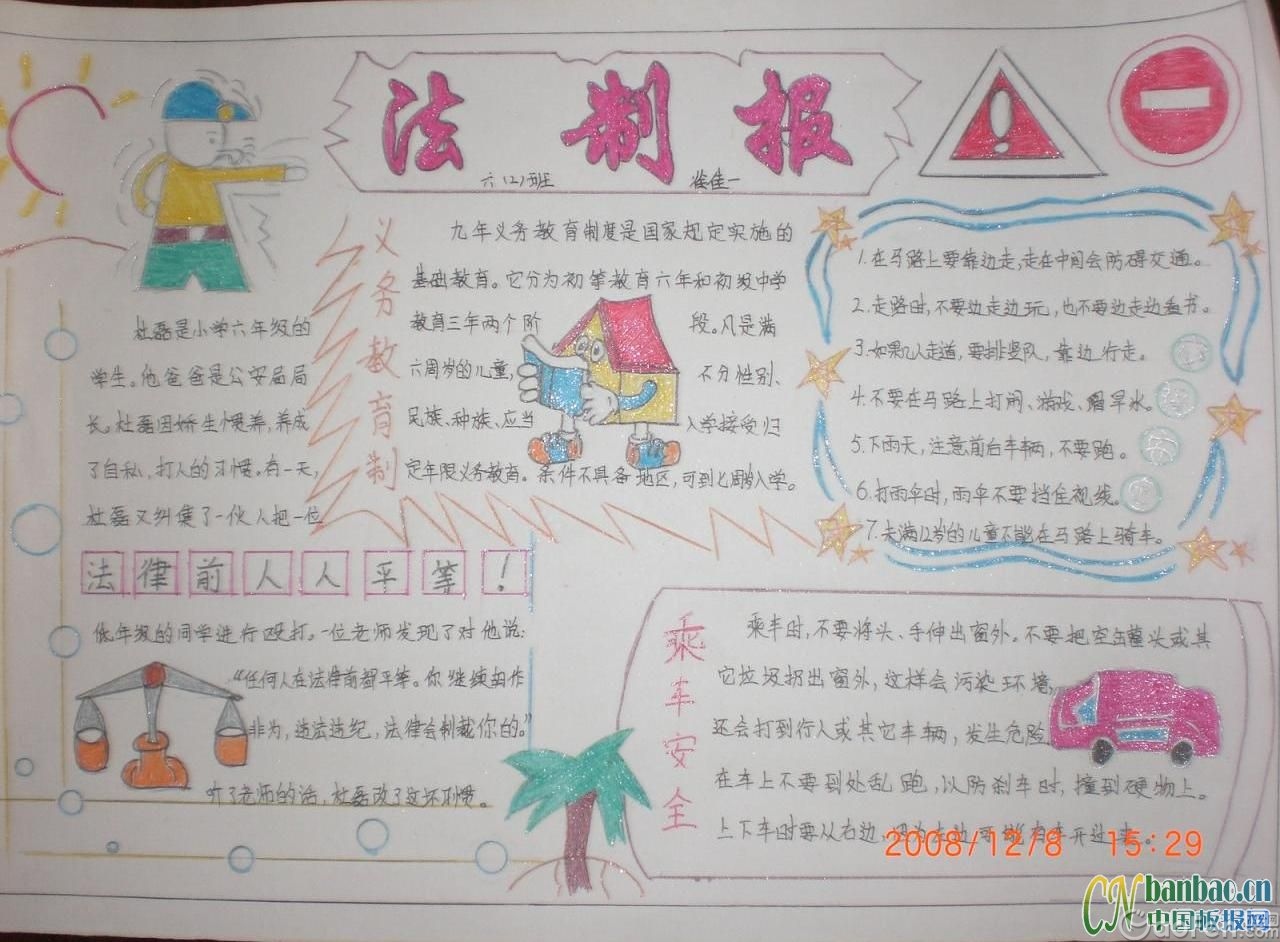 法制报
六(2)班
崔佳一
杜磊是小学六年级的
学生。他爸爸是公安局局
长。杜磊因娇生惯养,养成
了自私,打人的习惯。有一天,
杜磊又纠集了一伙人把一位
法律前人人平等!
低年级的同学进行殴打。一位老师发现了对他说:
“任何人在法律前都平等。你继续胡作
非为,违法违纪,法律会制裁你的。”
听了老师的话,杜磊改了这坏习惯。
义务教育制
九年义务教育制度是国家规定实施的
基础教育。它分为初等教育六年和初级中学
教育三年两个阶段。凡是满
六周岁的儿童,不分性别、
民族、种族、应当入学接受归
定年限义务教育。条件不具备地区,可到七周岁入学。
1.在马路上要靠边走,走在中间会防碍交通。
2.走路时,不要边走边玩,也不要边走边看书。
3.如果几人走道,要排竖队,靠边行走。
4.不要在马路上打闹、游戏、溜旱冰。
5.下雨天,注意前后车辆,不要跑。
6.打雨伞时,雨伞不要挡住视线。
7.未满12岁的儿童不能在马路上骑车。
乘车安全
乘车时,不要将头、手伸出窗外。不要把空罐头或其
它垃圾扔出窗外,这样会污染环境,
还会打到行人或其它车辆,发生危险
在车上不要到处乱跑,以防刹车时,撞到硬物上。
上下车时要从右边,因为左边可能有车开过来。
2008/12/8 15:29
CN banbao.cn
中国板报网